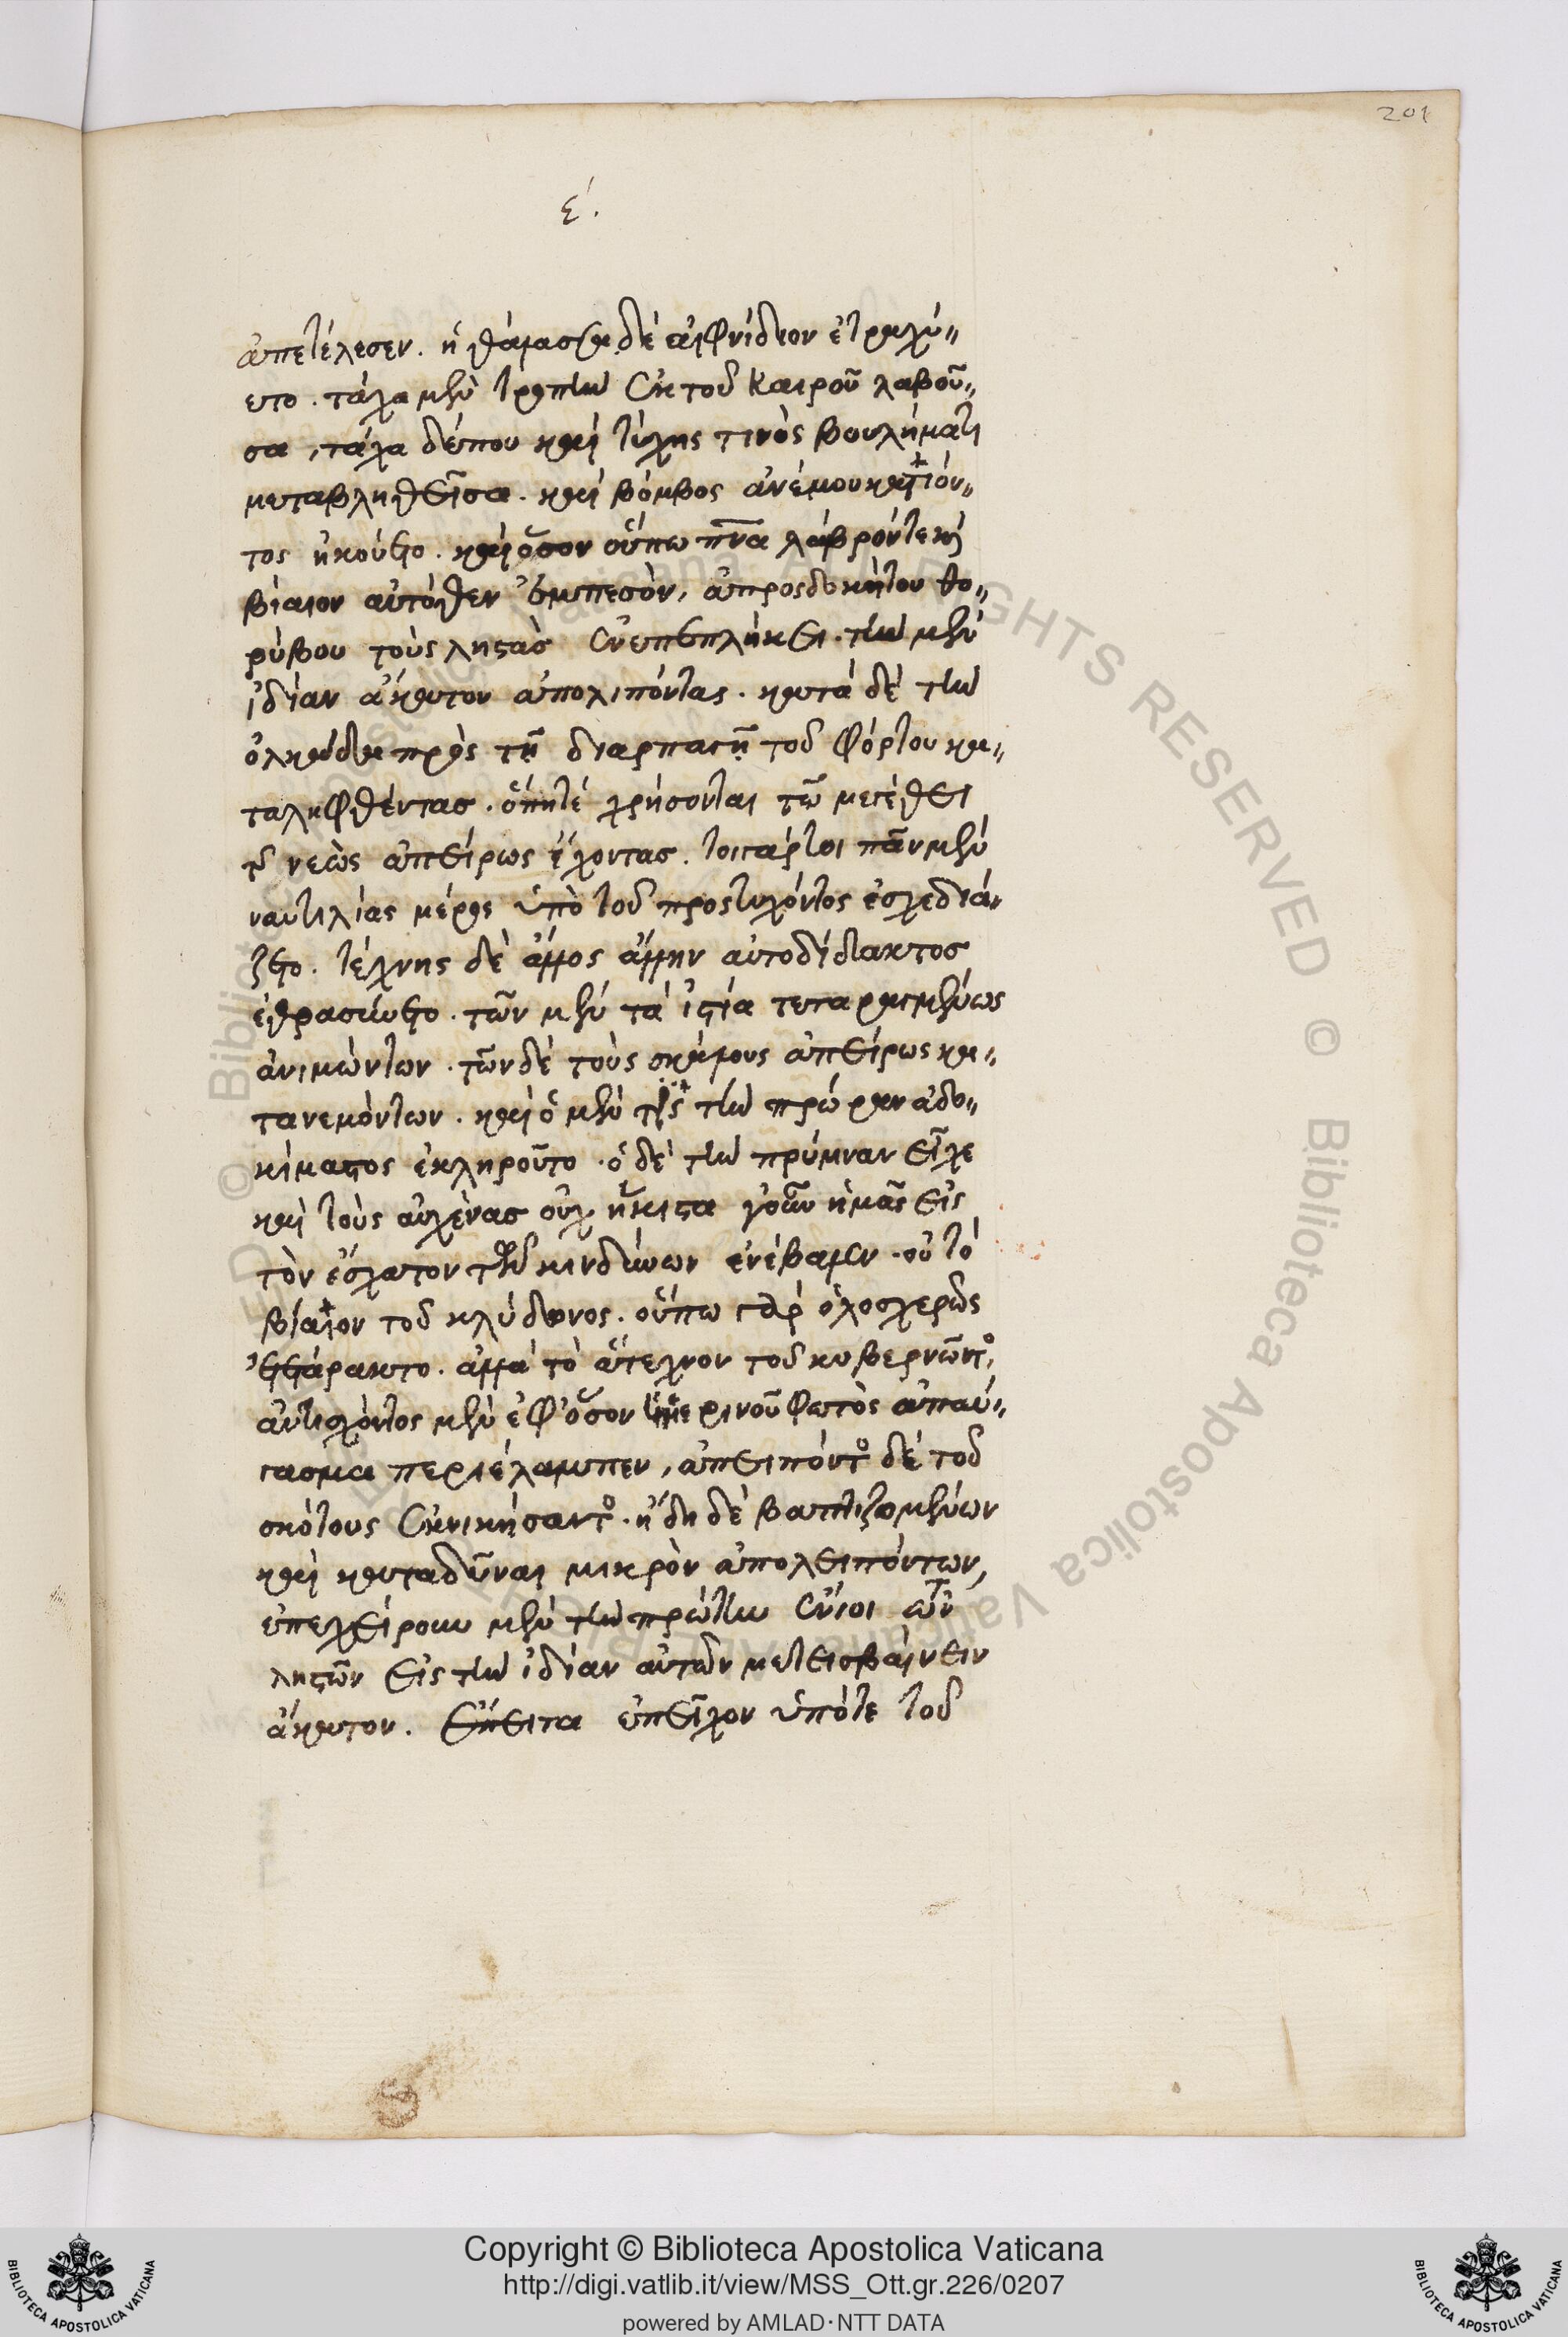 201
ε´.
ἀπετέλεσεν. ἡ θάλασσα δὲ αἰφνίδιον ἐτραχύ„
ετο. τάχα μὲν τροπὴν ἐκ τοῦ καιροῦ λαβοῦ„
σα, τάχα δέπου καὶ τύχης τινὸς βουλήματι
μεταβληθεῖσα. καὶ βόμβος ἀνέμου κατιόν„
τος ἠκούετο. καὶ ὅσον οὔπω πνα λάβρόν τε καὶ
βίαιον αὐτόθεν ἐμπεσὸν, ἀπροσδοκήτου θο„
ρύβου τοὺς ληστὰς ἐνεπεπλήκει. τὴν μὲν
ἰδίαν ἄκατον ἀπολιπόντας. κατὰ δὲ τὴν
ὁλκάδα πρὸς τῇ διαρπαγῇ τοῦ φόρτου κα„
ταληφθέντας. ὅπητέ χρήσονται τῶ μεγέθει
τ νεὼς ἀπείρως ἔχοντας. τοιγάρτοι πᾶν μὲν
ναυτιλίας μέρος ὑπὸ τοῦ προστυχόντος ἐσχεδιά„
ζετο. τέχνης δὲ ἄλλος ἄλλην αὐτοδίδακτος
ἐθρασύνετο. τῶν μὲν τὰ ἱστία τεταραγμένως
ἀνιμώντων. τῶν δὲ τοὺς σκάλμους ἀπείρως κα„
τανεμόντων. καὶ ὁ μὲν τις τὴν πρώραν ἀδο„
κίμαστος ἐκληροῦτο. ὁ δὲ τὴν πρύμναν εἶχε
καὶ τοὺς αὐχένας οὐχ ἥκιστα γοῦν ἡμᾶς εἰς
τὸν ἔσχατον τῶν κινδύνων ἐνέβαλεν. οὐ τὸ
βίαιον τοῦ κλύδωνος. οὔπω γὰρ ὁλοσχερῶς
ἐτετάρακτο. ἀλλὰ τὸ ἄτεχνον τοῦ κυβερνῶντος,
ἀντισχόντος μὲν ἐφ' ὅσον ἡμερινοῦ φωτὸς ἀπαύ„
γασμα περιέλαμπεν, ἀπειπόντος δὲ τοῦ
σκότους ἐκνικήσαντος. ἤδη δὲ βαπτιζομένων
καὶ καταδῦναι μικρὸν ἀπολειπόντων,
ἐπεχείρουν μὲν τὴν πρώτην ἔνιοι τῶν
ληστῶν εἰς τὴν ἰδίαν αὐτῶν μετεισβαίνειν
ἄκατον. ἔπειτα ἐπεῖχον ὑπότε τοῦ
© Biblioteca Apostolica Vaticana ALL RIGHTS RESERVED
BIBLIOTECA APOSTOLICA VATICANA
Copyright © Biblioteca Apostolica Vaticana
http://digi.vatlib.it/view/MSS_Ott.gr.226/0207
powered by AMLAD·NTT DATA
BIBLIOTECA APOSTOLICA VATICANA